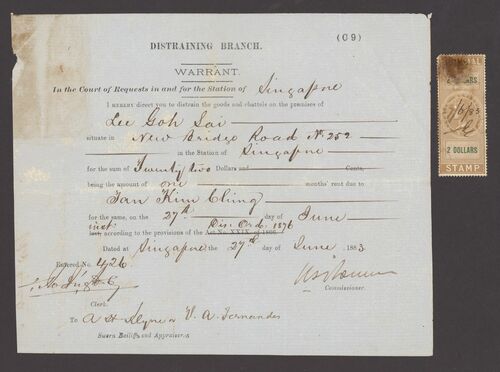 (C9)
DISTRAINING BRANCH.
WARRANT.
In the Court of Requests in and for the Station of Singapore
I HEREBY direct you to distrain the goods and chattels on the premises of
Lee Goh Sai
situate in New Bridge Road No. 252
in the Station of Singapore
for the sum of Twenty two Dollars and Cents,
being the amount of one months' rent due to
Tan Kim Ching
for the same, on the 27th day of June
inst Dis: Ord. 1876
last, according to the provisions of the Act No. XXIX. of 1866.
Dated at Singapore the 27th day of June 1883
Entered No. 426
Commissioner.
Clerk.
To A H Klyne or V. A. Fernandes
Sworn Bailiffs and Appraisers.
2 DOLLARS
2 DOLLARS
STAMP